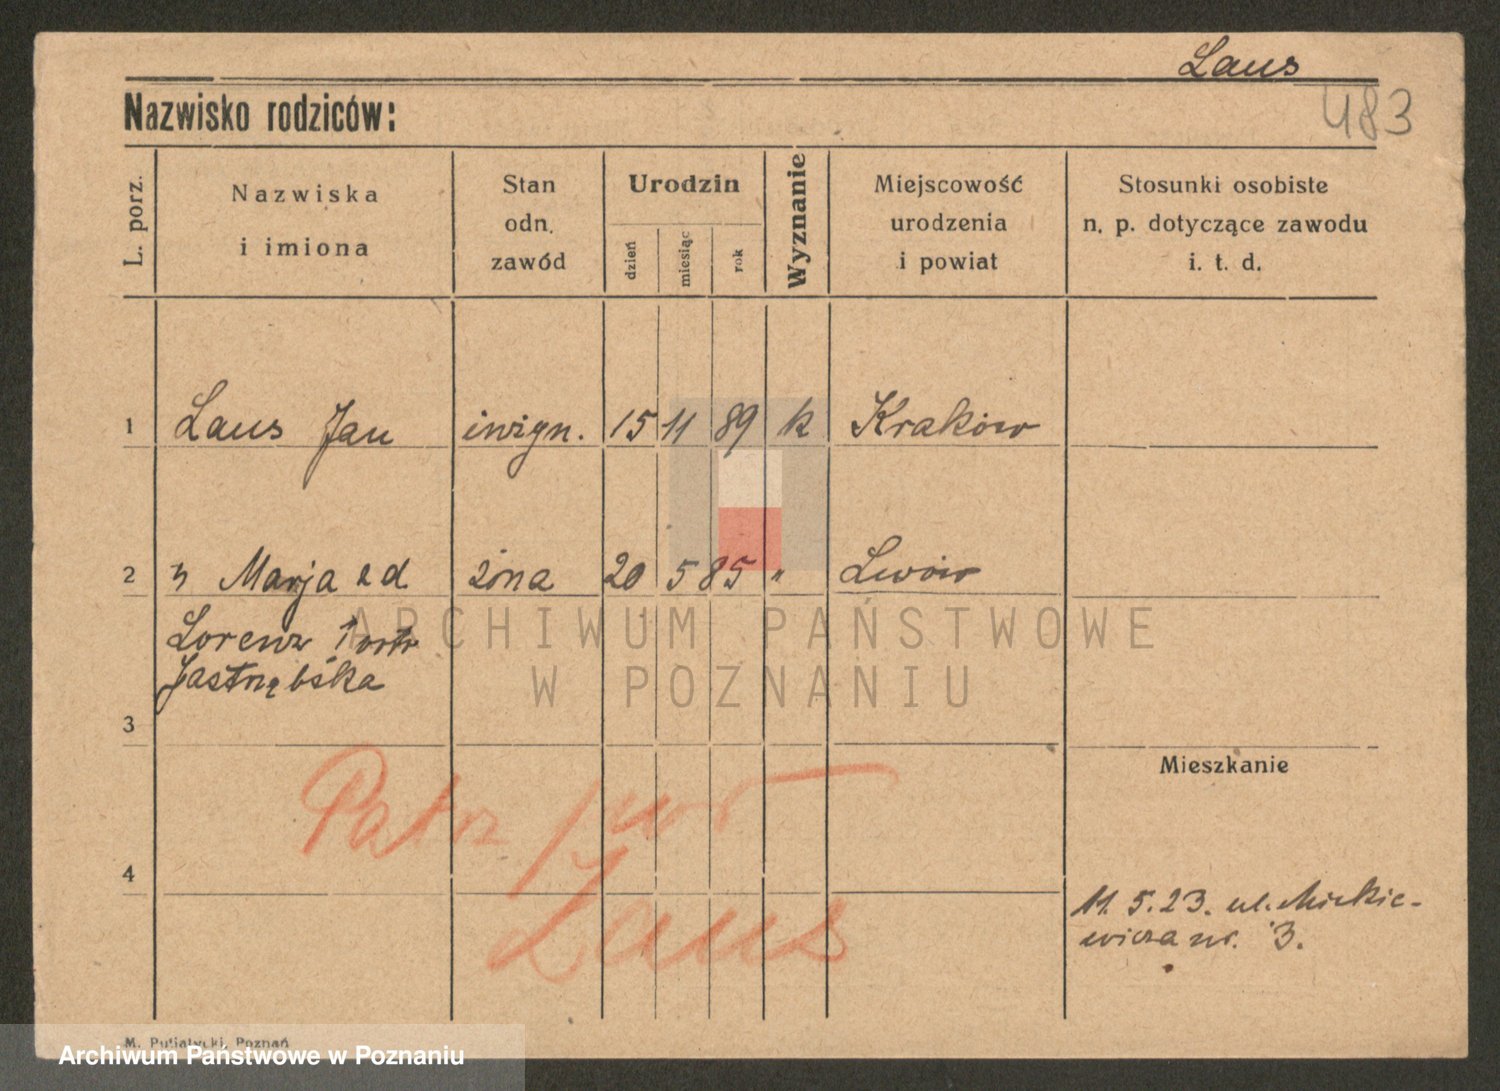 Laus
483
Nazwisko rodziców:
L. porz.
Nazwiska
i imiona
Stan
odn.
zawód
Urodzin
dzień
miesiąc
rok
Wyznanie
Miejscowość
urodzenia
i powiat
Stosunki osobiste
n. p. dotyczące zawodu
i. t. d.
1 Laus Jan inżyn. 15 11 89 k Kraków
2 " Marja żona 20 5 85 " Lwów
Lorenz
Jastrzębska
ARCHIWUM PAŃSTWOWE
W POZNANIU
3
Mieszkanie
Patrz
4
Laus
11. 5. 23. ul. Mickie-
wicza nr. 3.
M. Putiatycki, Poznań
Archiwum Państwowe w Poznaniu